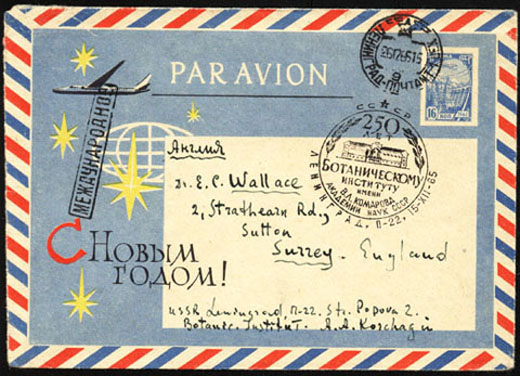 PAR AVION
МЕЖДУНАРОДНОЕ
16
КОП
СССР
250
ЛЕТ
БОТАНИЧЕСКОМУ
ИНСТИТУТУ
ИМЕНИ
В.Л. КОМАРОВА
АКАДЕМИИ НАУК СССР
ЛЕНИНГРАД, П-22, 15-XII-65
Англия
Dr. E. C. Wallace
2, Strathearn Rd.,
Sutton
Surrey. England
С НОВЫМ
ГОДОМ!
USSR Leningrad П-22. Str. Popova 2.
Botanic. Institut. A.A. Korchagin